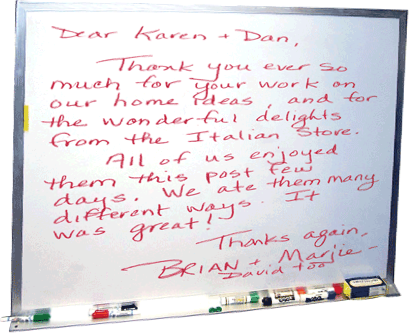 Dear Karen + Dan,
Thank you ever so
much for your work on
our home ideas, and for
the wonderful delights
from the Italian Store.
All of us enjoyed
them this past few
days. We ate them many
different ways. It
was great!
Thanks again,
BRIAN + Marjie -
David too